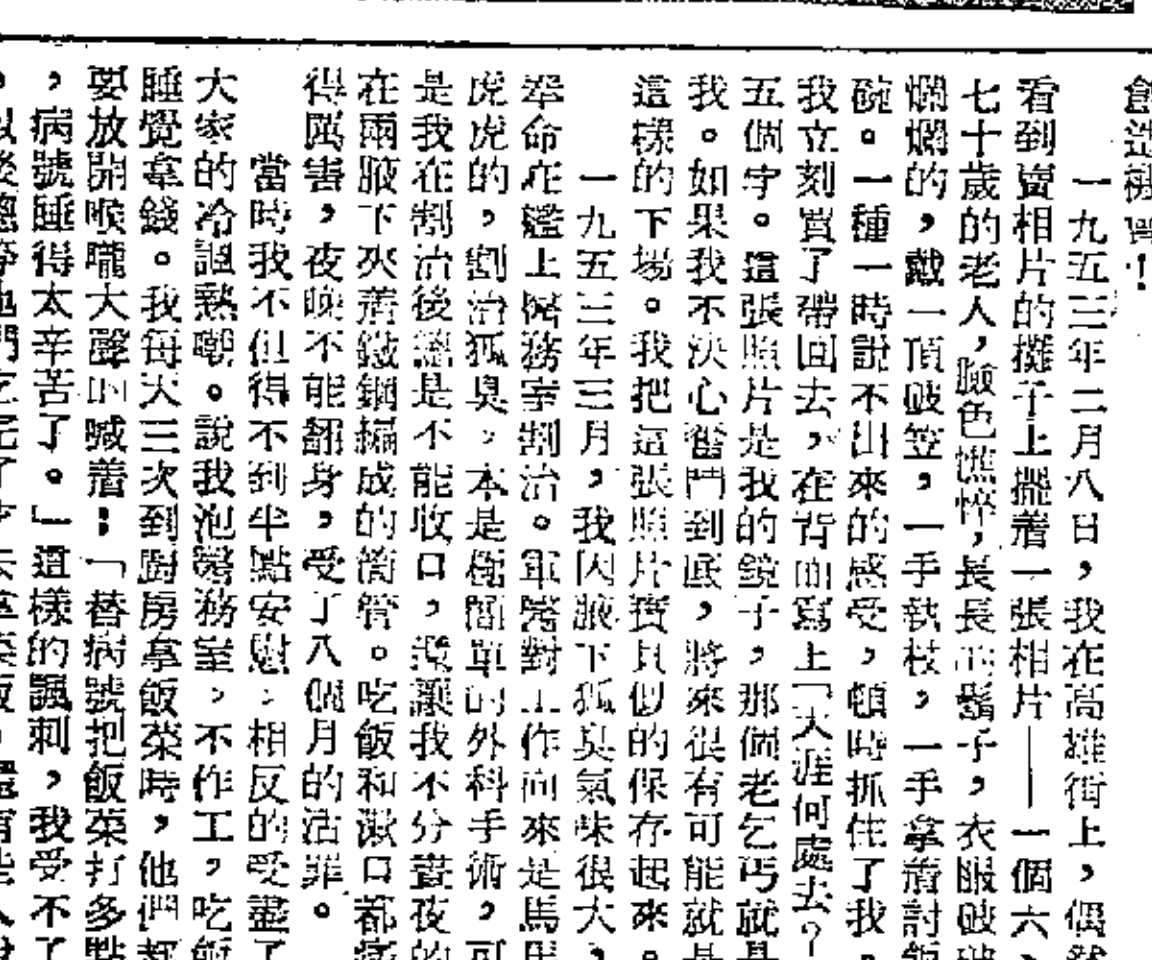 創造機會!
一九五三年二月八日，我在高雄街上，偶然
看到賣相片的攤子上擺着一張相片——一個六、
七十歲的老人，臉色憔悴，長長的鬍子，衣服破破
爛爛的，戴一頂破笠，一手執枝，一手拿着討飯
碗。一種一時説不出來的感受，頓時抓住了我。
我立刻買了帶回去，在背面寫上「天涯何處去？
五個字。這張照片是我的鏡子，那個老乞丐就是
我。如果我不決心奮鬥到底，將來很有可能就是
這樣的下場。我把這張照片寶貝似的保存起來。
一九五三年三月，我因腋下狐臭氣味很大，
奉命在艦上醫務室割治。軍醫對工作向來是馬馬
虎虎的，割治狐臭，本是極簡單的外科手術，可
是我在割治後總是不能收口，還讓我不分晝夜的
在兩腋下夾着鐵鋼編成的筒管。吃飯和漱口都痛
得厲害，夜晚不能翻身，受了八個月的活罪。
當時我不但得不到半點安慰，相反的受盡了
大家的冷諷熱嘲。説我泡醫務室，不作工，吃飯
睡覺拿錢。我每天三次到廚房拿飯菜時，他們都
要放開喉嚨大聲的喊着：「替病號把飯菜打多點
，病號睡得太辛苦了。」這樣的諷刺，我受不了
。以後總等他們吃完了才去拿菜飯，還有些人説